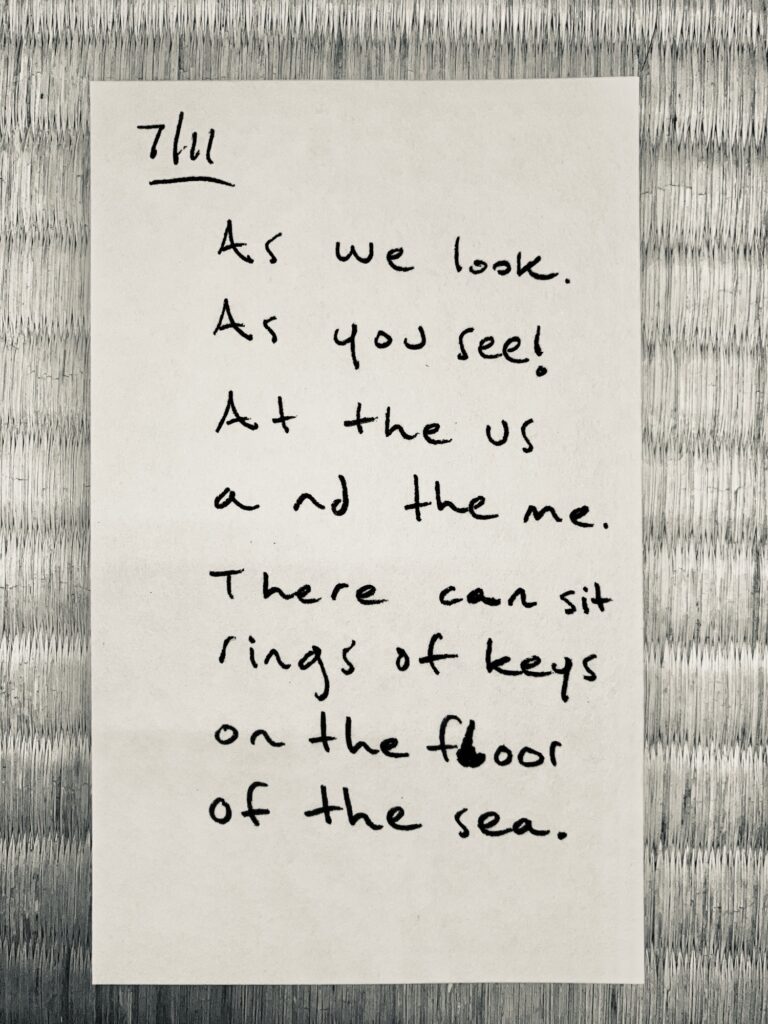 7/11
As we look.
As you see!
At the us
and the me.
There can sit
rings of keys
on the floor
of the sea.